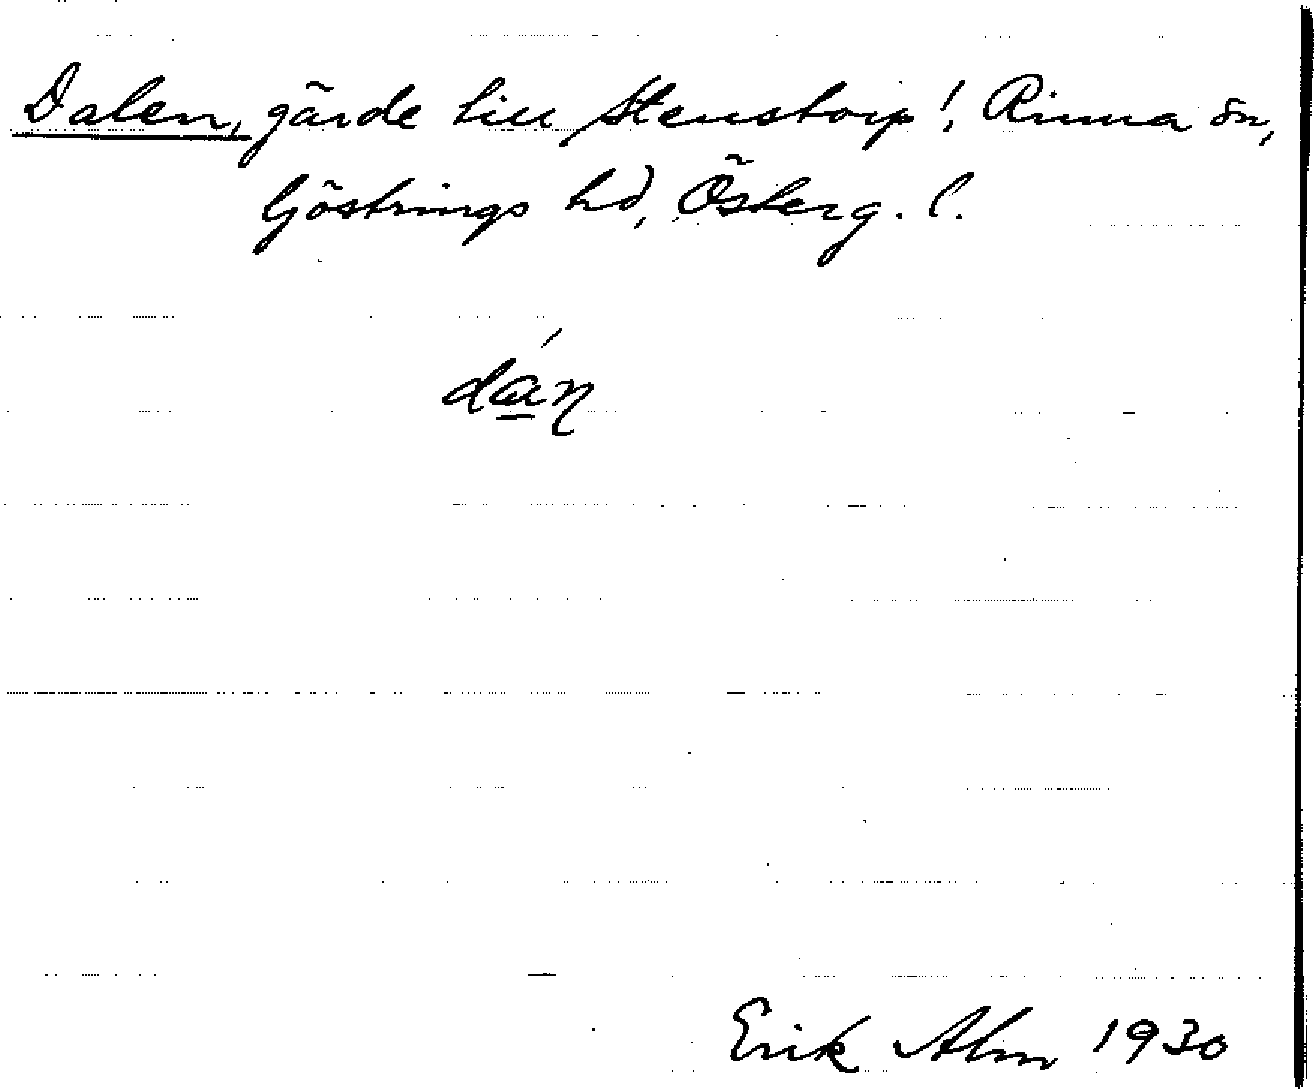 Dalen, gärde till Stenstorp! Rinna sn,
Göstrings hd, Österg. l.
dáŋ
Erik Alm 1930